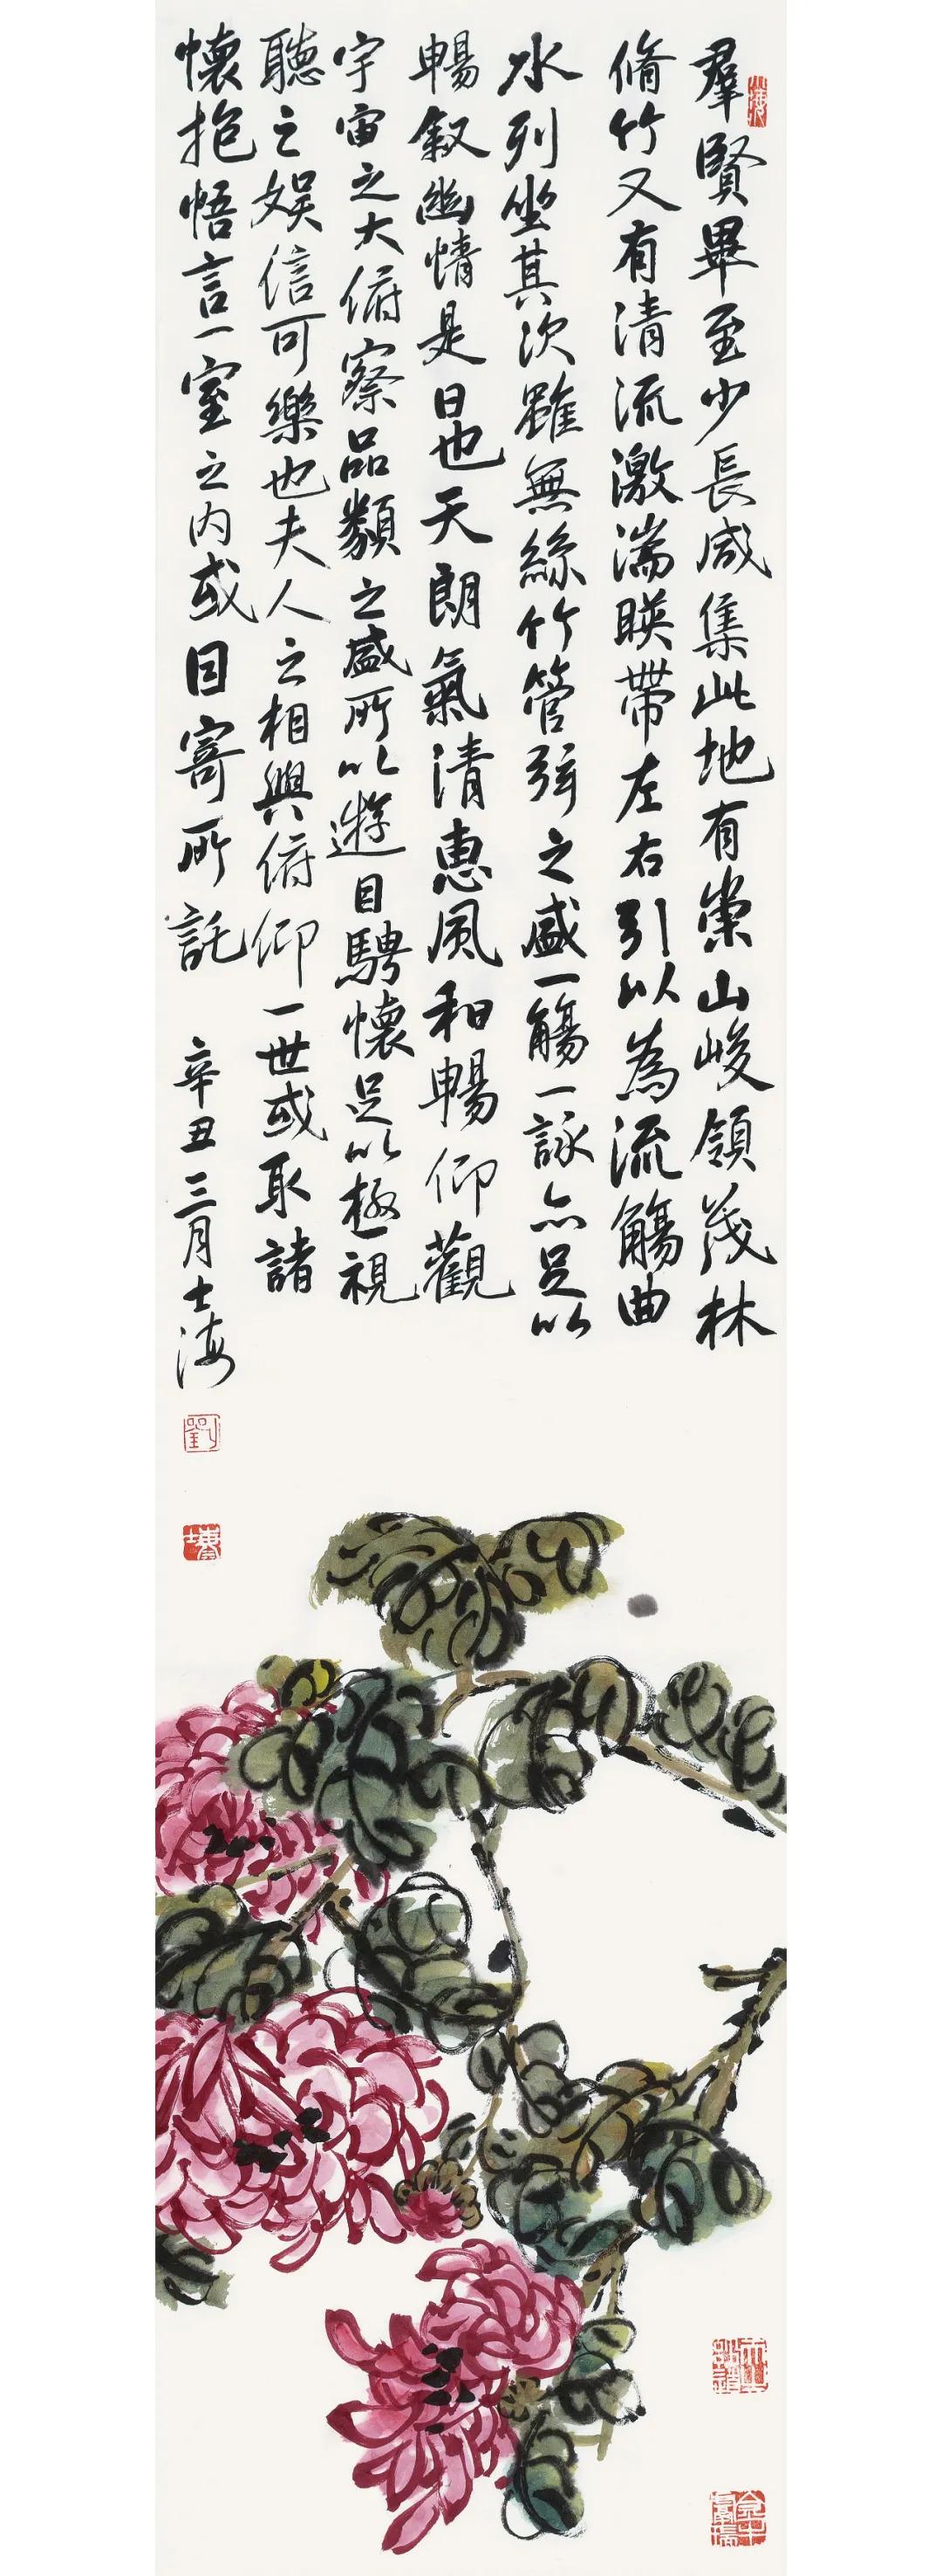 羣賢畢至少長咸集此地有崇山峻領茂林
脩竹又有清流激湍暎帶左右引以為流觴曲
水列坐其次雖無絲竹管弦之盛一觴一詠亦足以
暢叙幽情是日也天朗氣清惠風和暢仰觀
宇宙之大俯察品類之盛所以遊目騁懷足以極視
聽之娛信可樂也夫人之相與俯仰一世或取諸
懷抱悟言一室之内或因寄所託
辛丑三月士海
劉